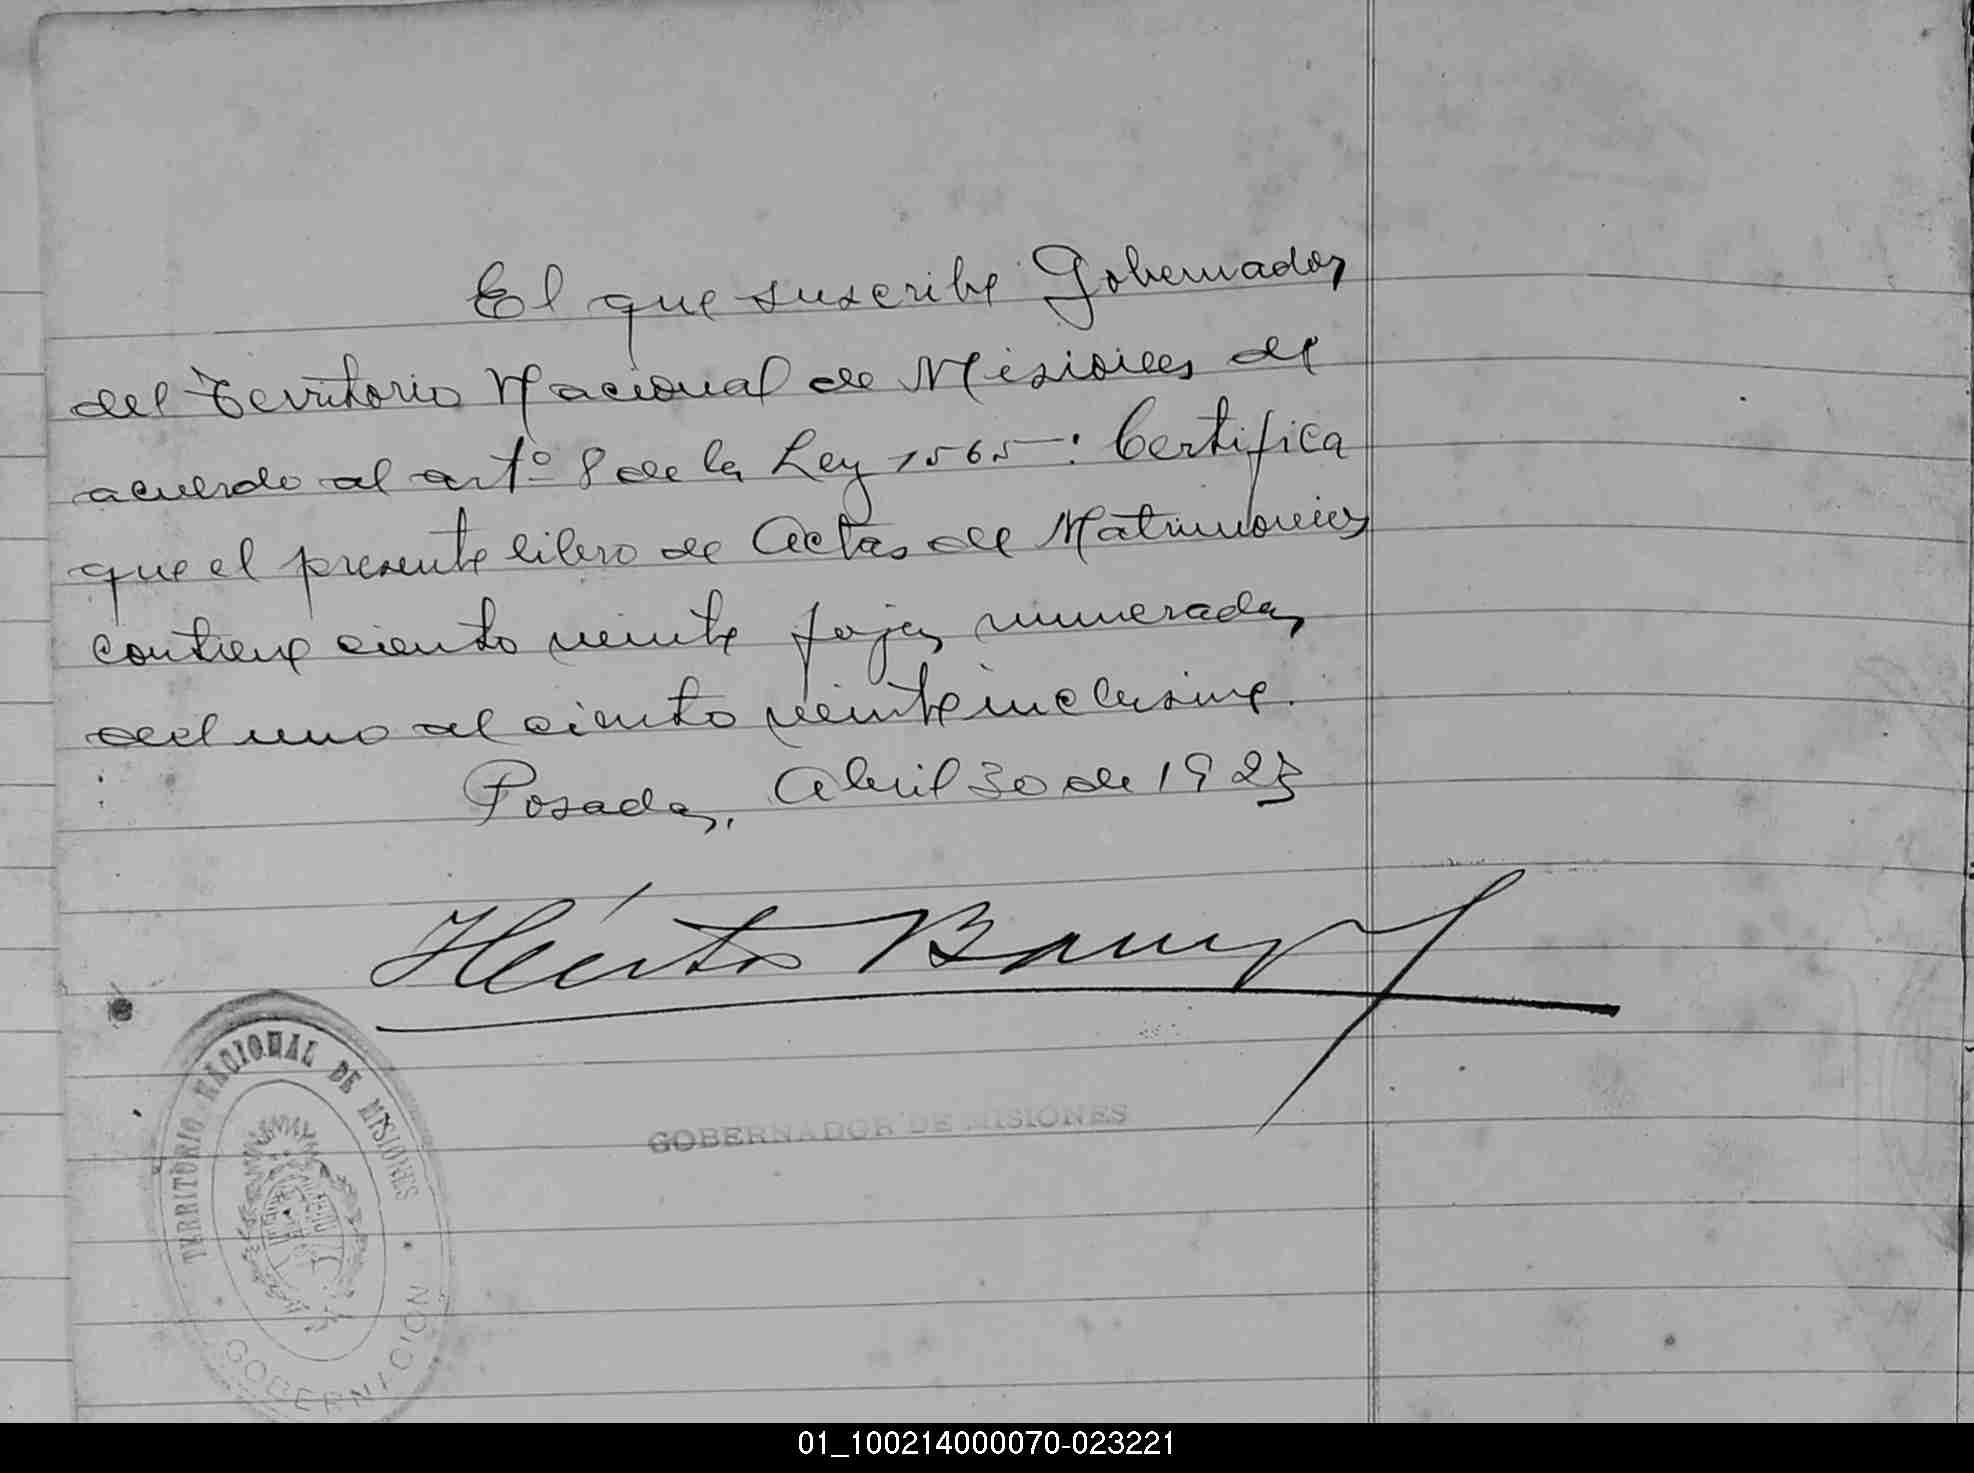 El que suscribe Gobernador
del Territorio Nacional de Misiones de
acuerdo al artº 8 de la Ley 1565: Certifica
que el presente libro de Actas de Matrimonios
contiene ciento veinte fojas numeradas
del uno al ciento veinte inclusive.
Posadas, Abril 30 de 1925
Héctor Barreyro
GOBERNADOR DE MISIONES
TERRITORIO NACIONAL DE MISIONES
GOBERNACION
01_100214000070-023221